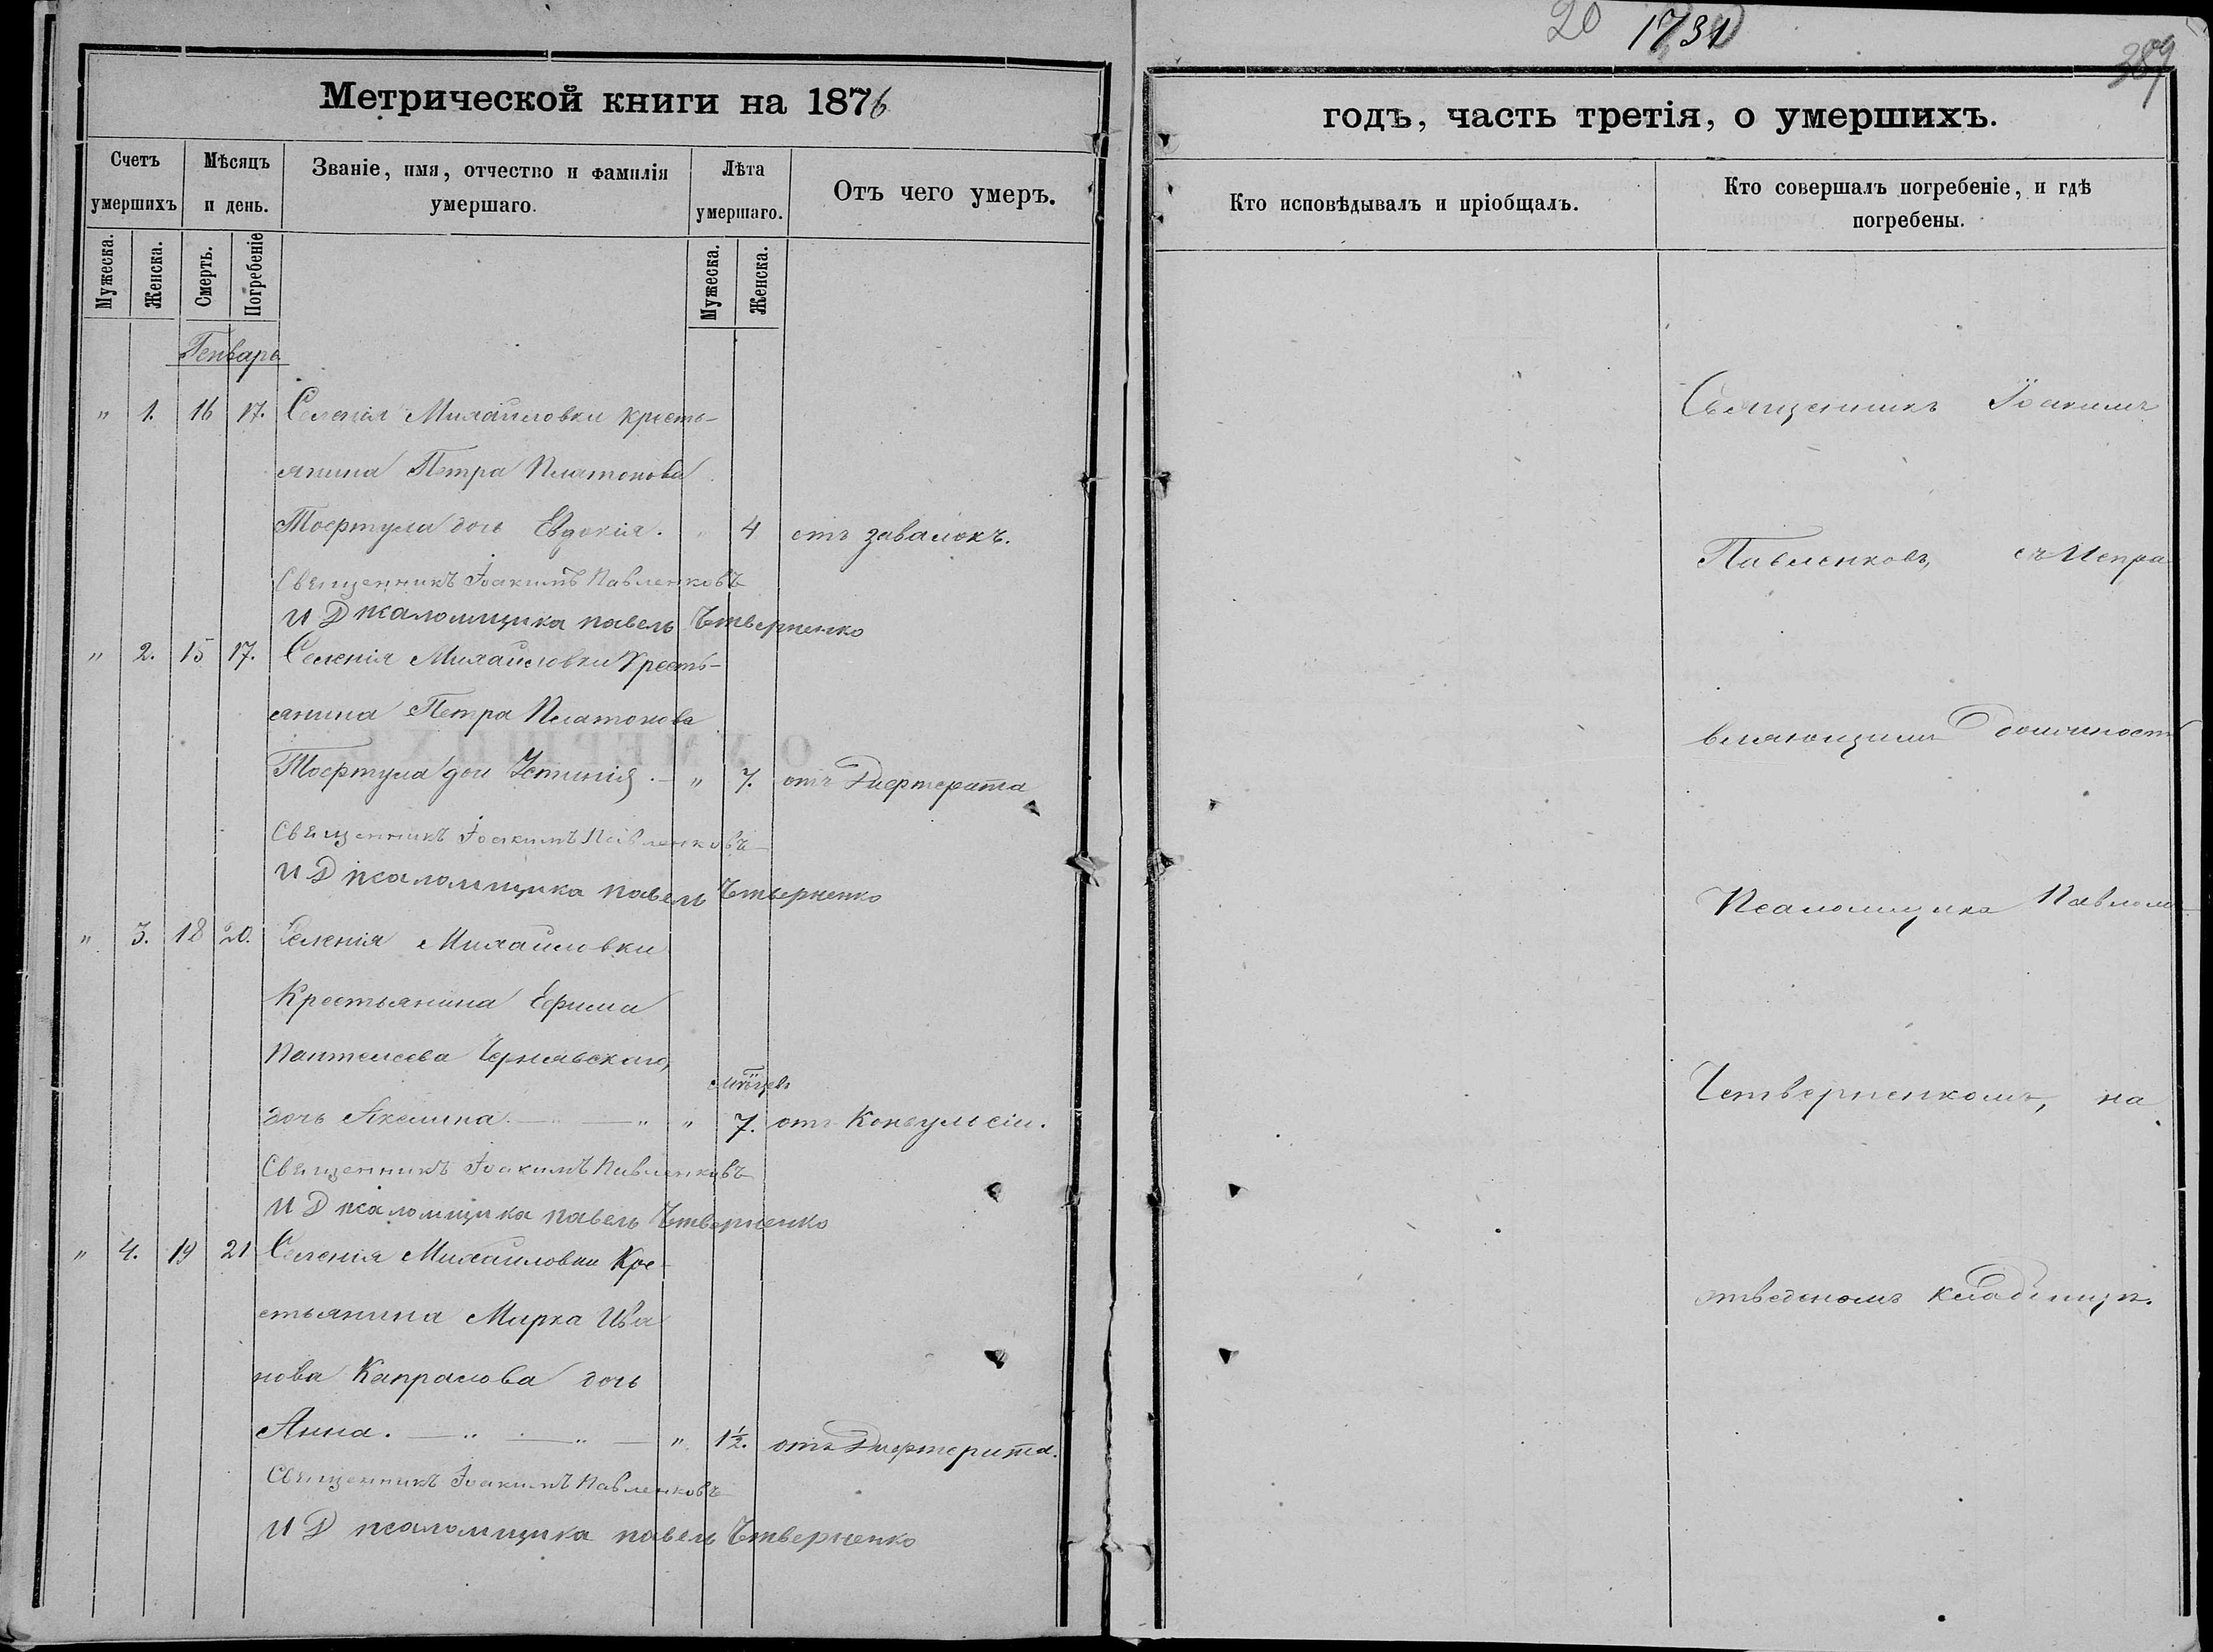 20 1731
389
Метрической книги на 1876
годъ, часть третія, о умершихъ.
Счетъ умершихъ
Мѣсяцъ и день.
Званіе, имя, отчество и фамилія умершаго.
Лѣта умершаго.
Отъ чего умеръ.
Кто исповѣдывалъ и пріобщалъ.
Кто совершалъ погребеніе, и гдѣ погребены.
Мужеска. Женска. Смерть. Погребеніе Мужеска. Женска.
Генварь
" 1. 16 17. Селенія Михайловки кресть-
янина Петра Платонова
дочь Евдокія. " 4 отъ завалокъ.
Священникъ Іоакимъ Павленковъ
И Д псаломщика павелъ Четверненко
" 2. 15 17. Селенія Михайловки Кресть-
янина Петра Платонова
дочь Устинія. — " 7. отъ Дифтерита
Священникъ Іоакимъ Павленковъ
И Д псаломщика павелъ Четверненко
" 3. 18 20. Селенія Михайловки
Крестьянина Ефима
Пантелеева Чернявскаго,
дочь Акелина. — " — " " 7. отъ Конвульсіи.
Священникъ Іоакимъ Павленковъ
И Д псаломщика павелъ Четверненко
" 4. 19 21 Селенія Михайловки Кре-
стьянина Марка Ива
нова Капралова дочь
Анна. — " — " — " 1½. отъ Дифтерита.
Священникъ Іоакимъ Павленковъ
И Д псаломщика павелъ Четверненко
Священникъ Іоакимъ
Павленковъ, съ Испра
вляющимъ Должность
Псаломщика Павломъ
Четверненкомъ, на
отведеномъ кладбищѣ.